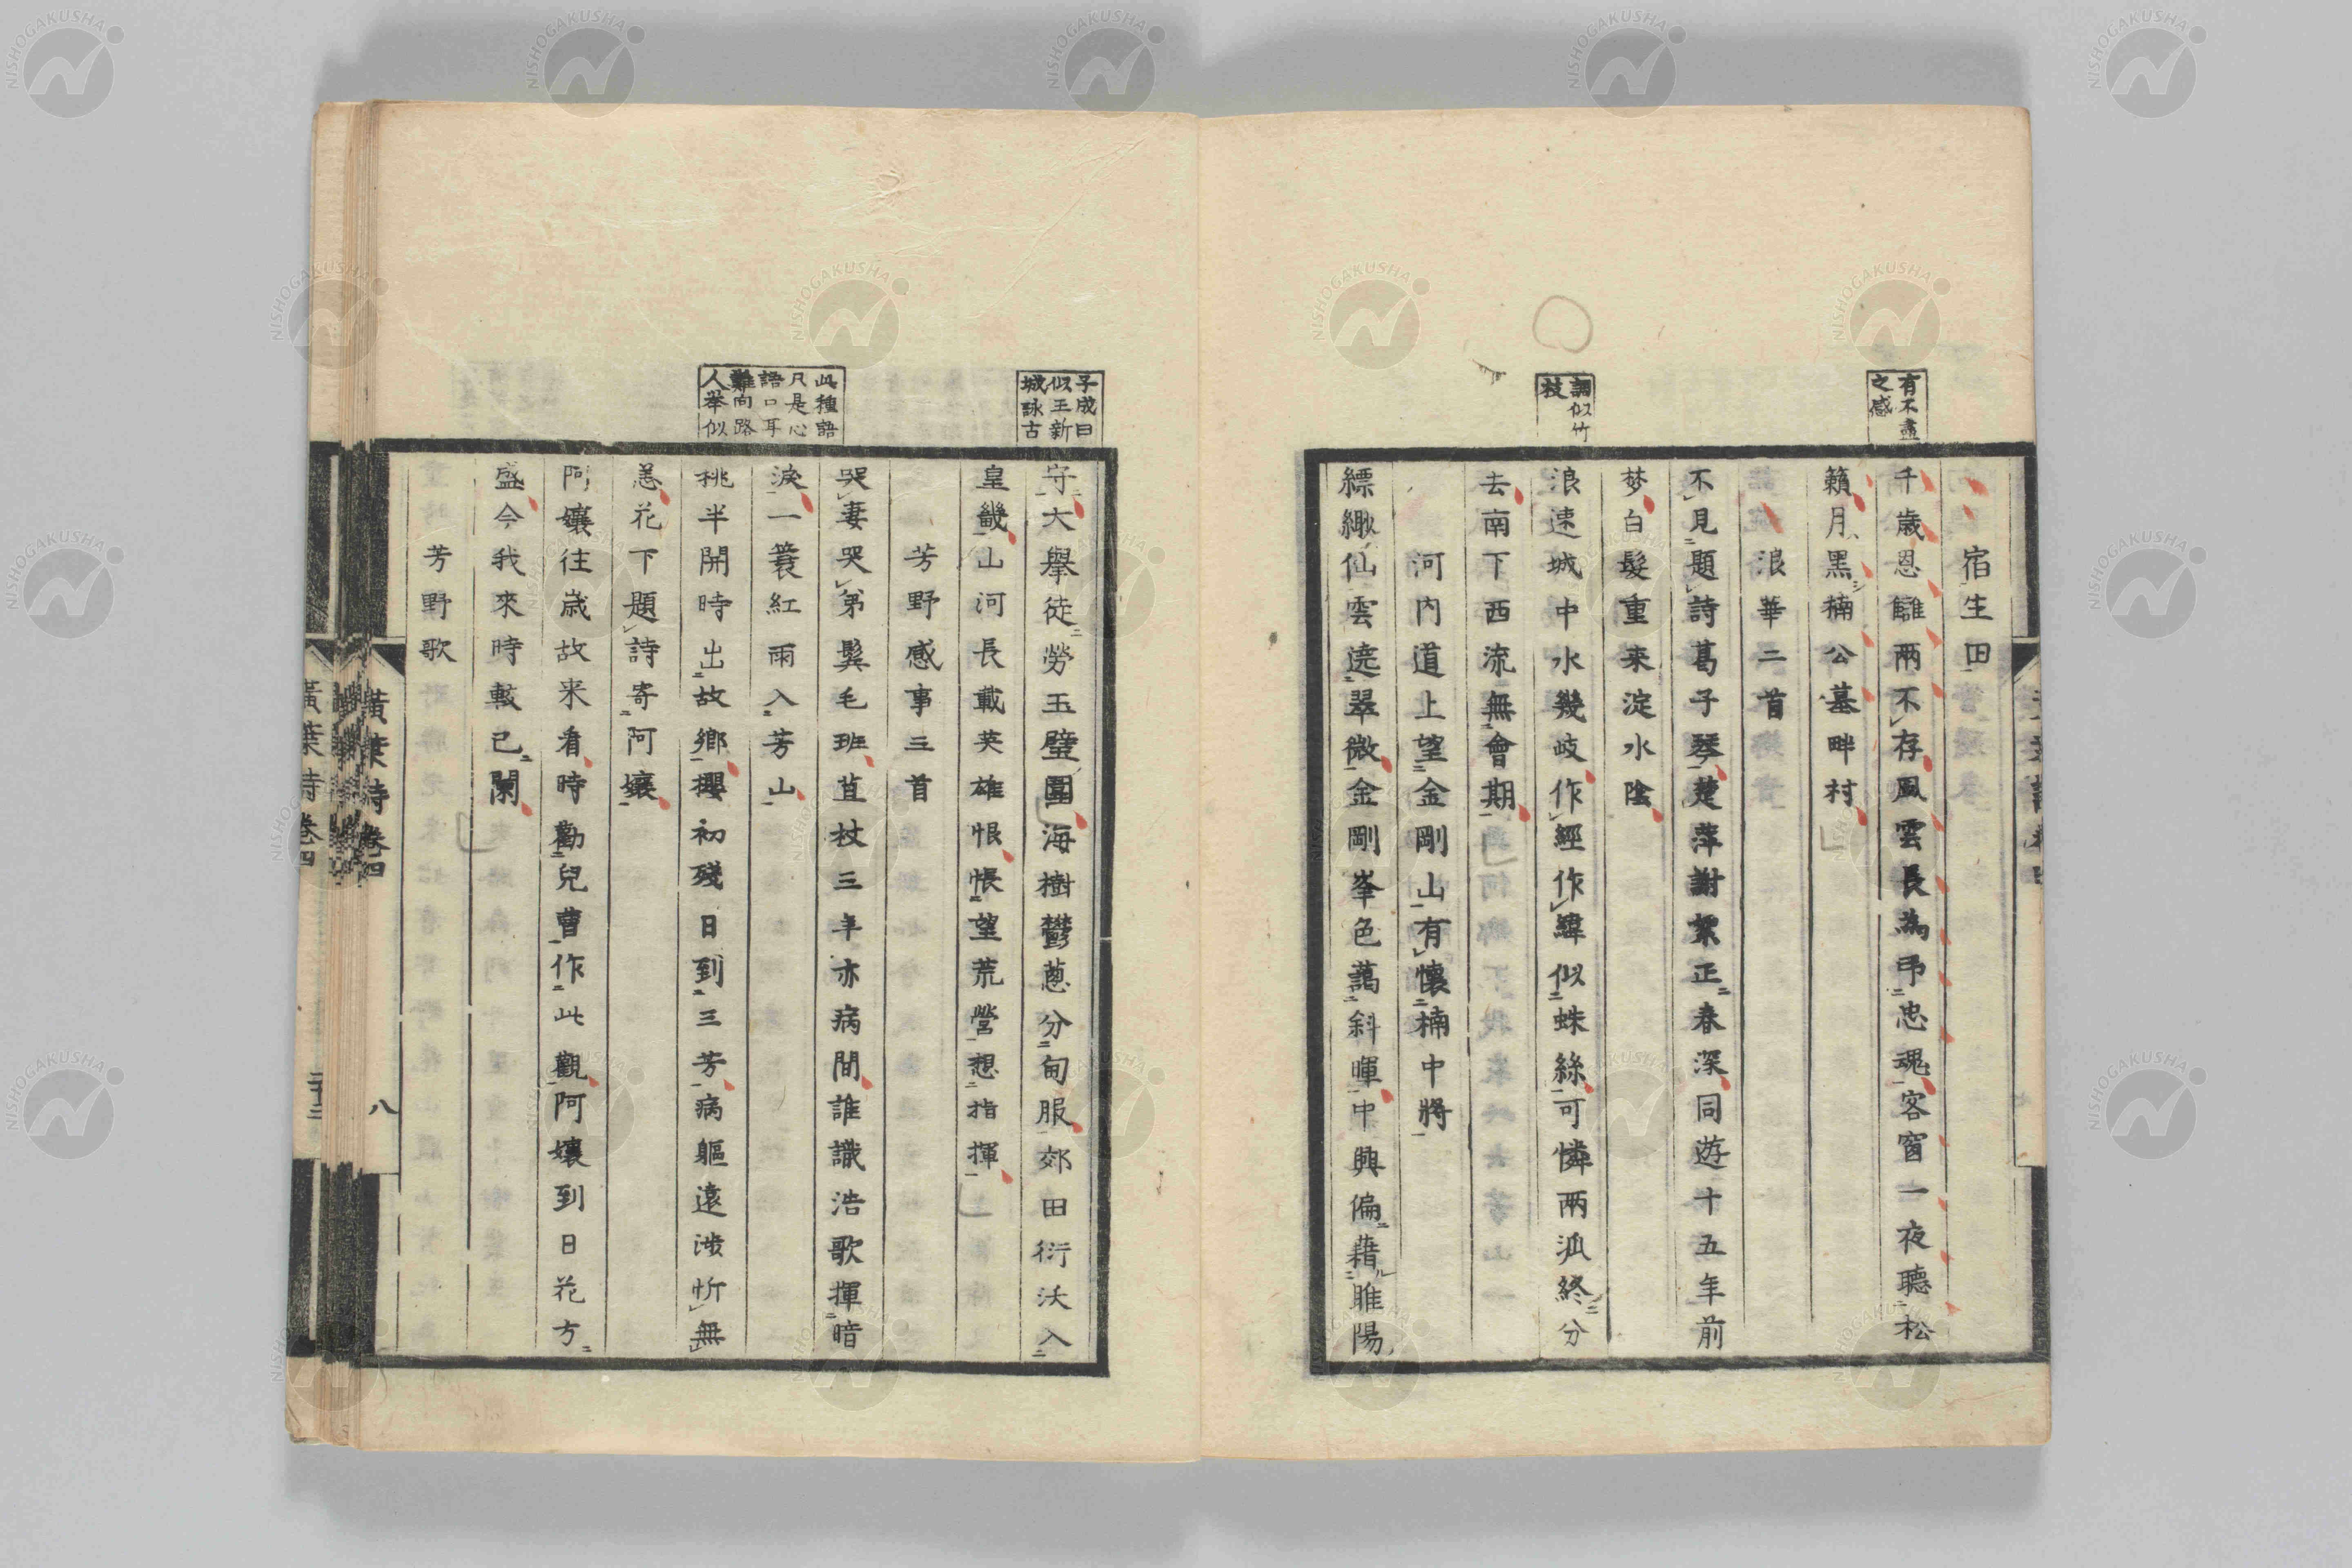 有不盡
之感
調似竹
枝
宿生田
千歳恩讎兩不存風雲長為弔忠魂客窗一夜聽松
籟月黑楠公墓畔村
浪華二首
不見題詩葛子琴楚萍謝絮正春深同遊十五年前
梦白髮重来淀水陰
浪速城中水幾岐作經作緯似蛛絲可憐兩派終分
去南下西流無會期
河内道上望金剛山有懷楠中將
縹緲仙雲遶翠微金剛峯色藹斜暉中興偏藉睢陽
子成曰
似王新
城詠古
此種語
只是心
語口耳
難向路
人舉似
守大擧徒勞玉璧圍海樹鬱蔥分甸服郊田衍沃入
皇畿山河長載英雄恨悵望荒營想指揮
芳野感事三首
哭妻哭弟鬓毛班苴杖三年亦病間誰識浩歌揮暗
淚一簑紅雨入芳山
桃半開時出故鄉櫻初殘日到三芳病軀遠涉忻無
恙花下題詩寄阿孃
阿孃往歳故来看時勸兒曹作此觀阿孃到日花方
盛今我來時較已闌
芳野歌
黃葉詩卷四
八
黃葉詩卷四
NISHOGAKUSHA